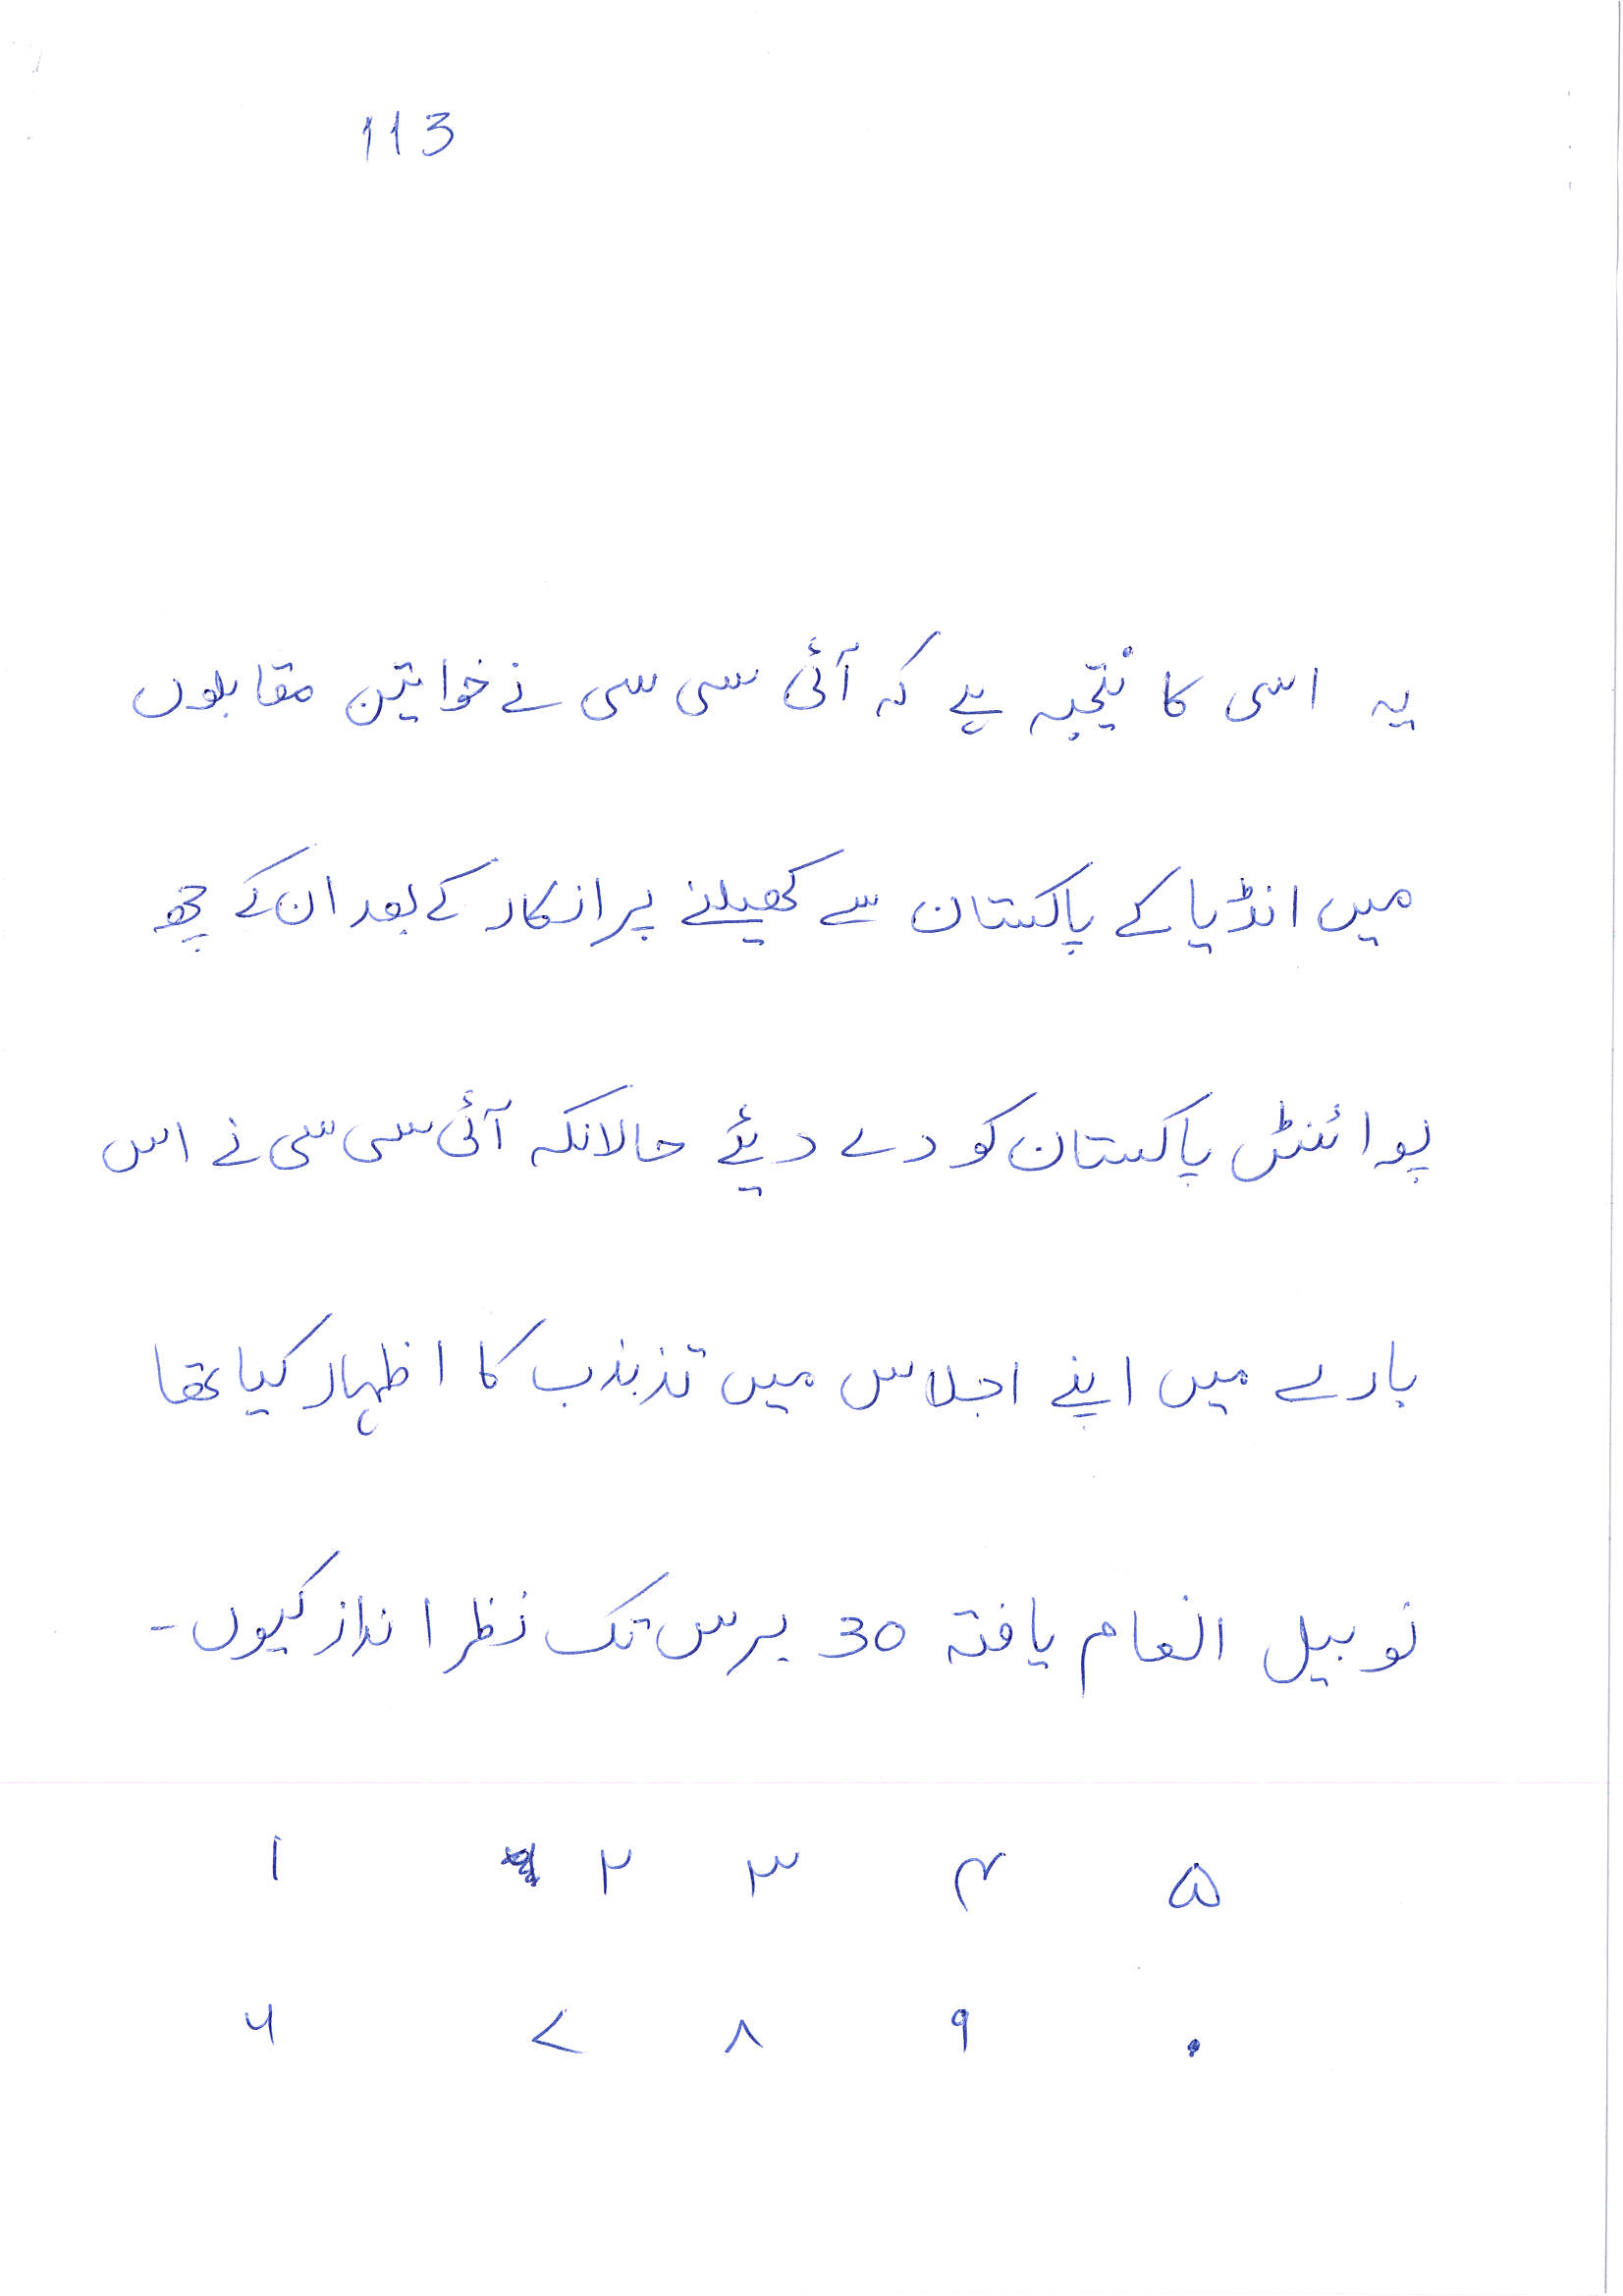 113
یہ اسی کا نتیجہ ہے کہ آئی سی سی نے خواتین مقابلوں
میں انڈیا کے پاکستان سے کھیلنے پر انکار کے بعد ان کے چھ
پوائنٹس پاکستان کو دے دیئے حالانکہ آئی سی سی نے اس
بارے میں اپنے اجلاس میں تذبذب کا اظہار کیا تھا
نوبیل انعام یافتہ 30 برس تک نظر انداز کیوں۔
۱ ۲ ۳ ۴ ۵
۶ ۷ ۸ ۹ ۰